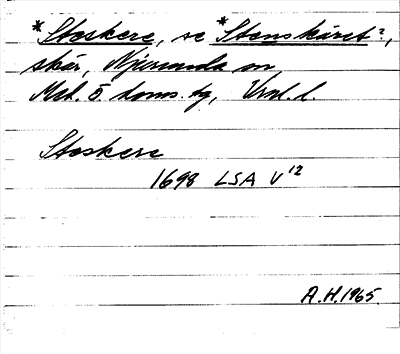 *Steskere, se *Stenskäret?,
skär, Njurunda sn
Med. ö. doms. tg, Vnl. l.
Steskere
1698 LSA V¹²
A.H. 1965.